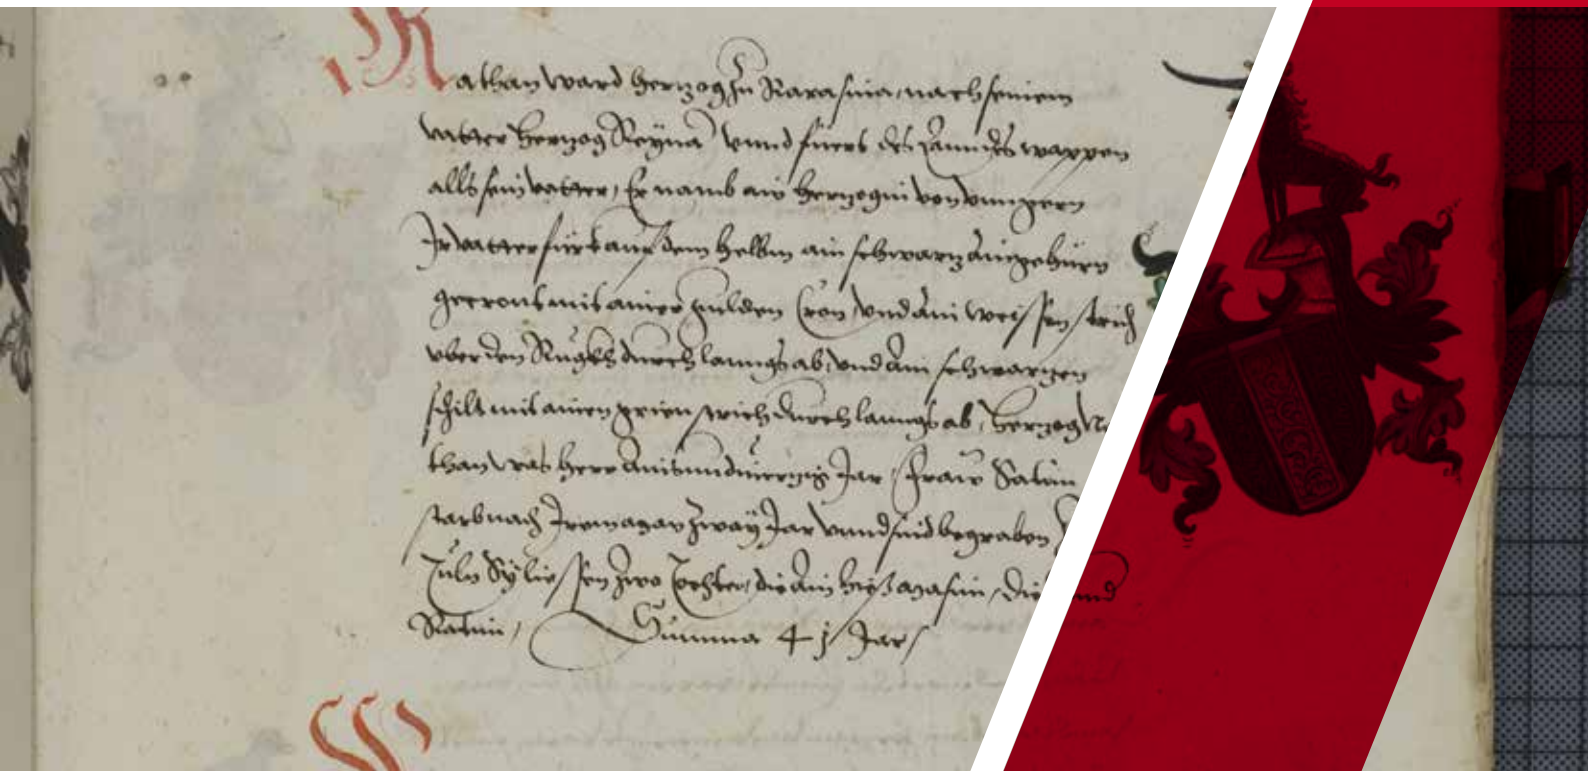 Nathan ward hertzog zu Rarasma, nach seinem
vatter hertzog Reyna vnnd fuert des Lanndes wappen
alls sein vatter, Er namb ain hertzogin von vnngern
Ir vatter fürt auf dem helbm ain schwartz aingehürn
gecront mit ainer gulden Cron, vnd ain weissen strich
vber den Rugkh durch lanngs ab, vnd ain schwartzen
schilt mit ainen grien strich durch lanngs ab, hertzog Na
than was herr ainsundviertzig Jar, fraw Salim
starb nach Irem man zway Jar vnnd sind begraben
Tuln Sy liessen zwo Tochter, die ain hies, die annd
Summa 41 Jar,